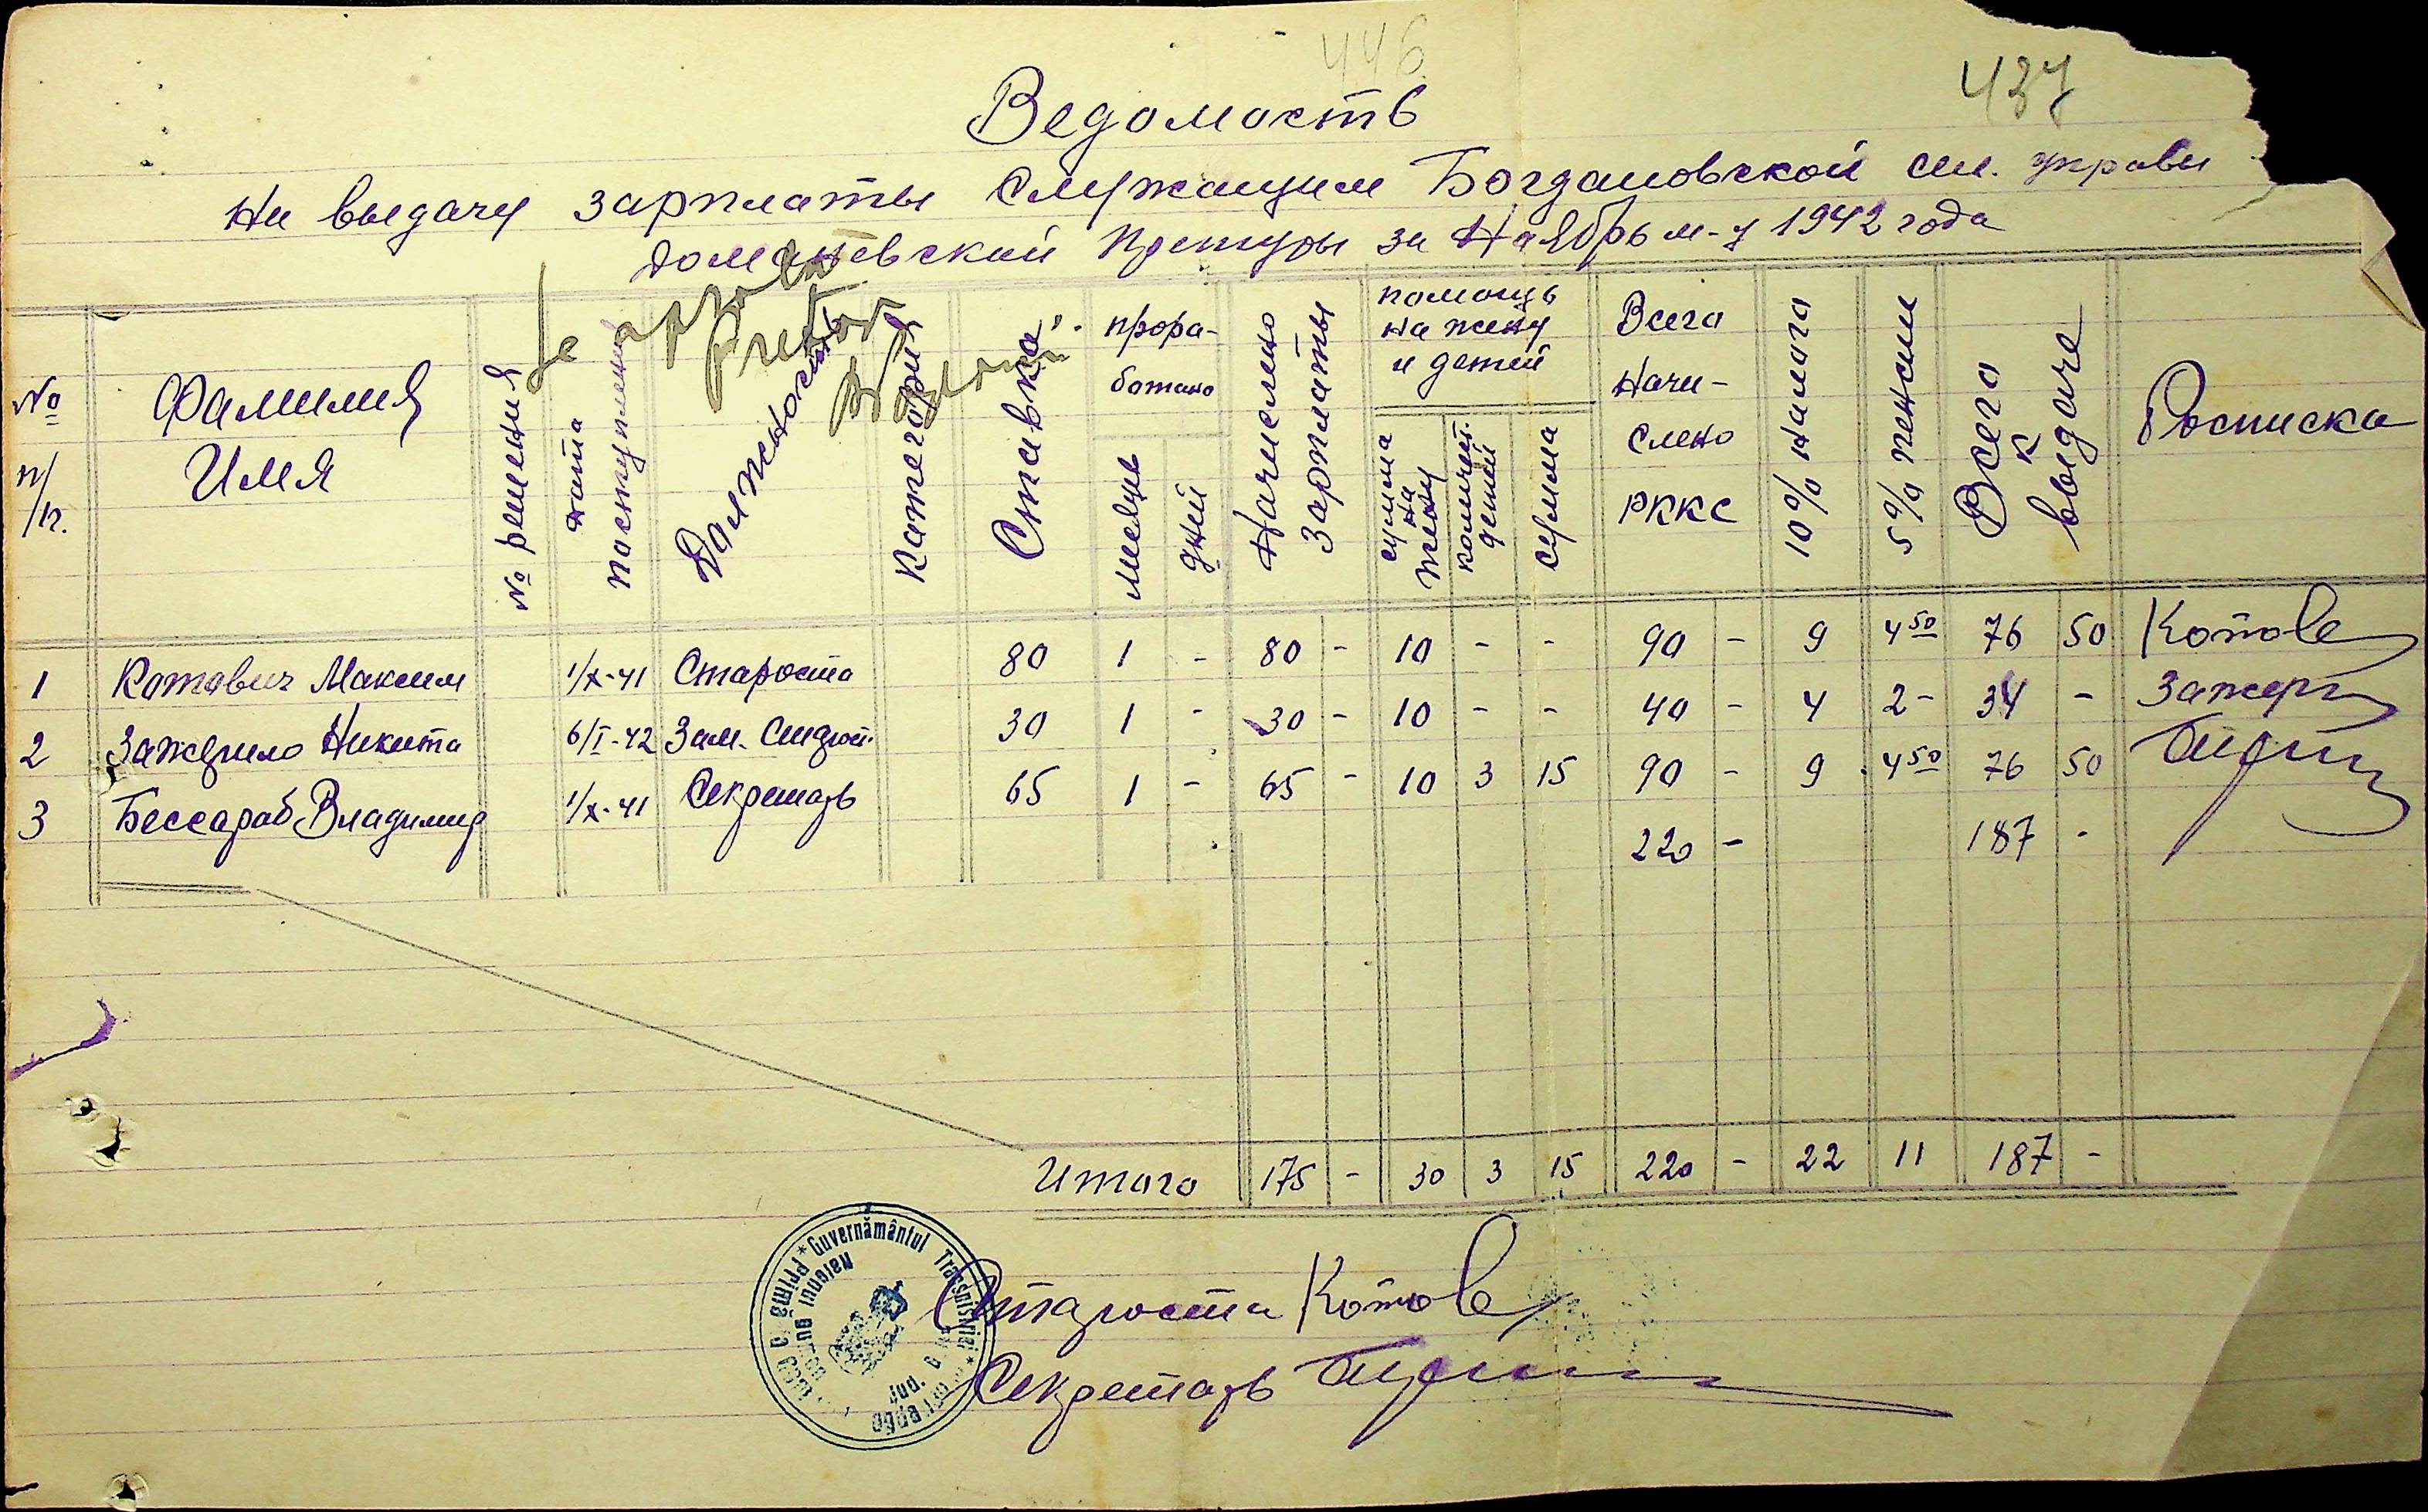 446
437
Ведомость
На выдачу зарплаты служащим Богдановской сел. управы
Доманевской Претуры за Ноябрь м-ц 1942 года
Se aprobă
Pretor
№ п/п.
Фамилия Имя
№ решения
дата поступления
Должность
Категория
Ставка
прора-
ботано
месяцев
дней
Начислено зарплаты
помощь
на жену
и детей
сумма на жену
количест. детей
сумма
Всего
Начи-
слено
РККС
10% налога
5% пенсии
Всего к выдаче
Росписка
1 Котович Максим 1/X-41 Староста 80 1 - 80 - 10 - - 90 - 9 4 50 76 50 Котов
2 Зажерило Никита 6/I-42 Зам. 30 1 - 30 - 10 - - 40 - 4 2 - 34 - Зажер
3 Бессараб Владимир 1/X-41 Секретарь 65 1 - 65 - 10 3 15 90 - 9 4 50 76 50
220 - 187 -
Итого 175 - 30 3 15 220 - 22 11 187 -
Guvernământul Transnistriei
Primăria
Raionul
Jud.
Староста Котов
Секретарь